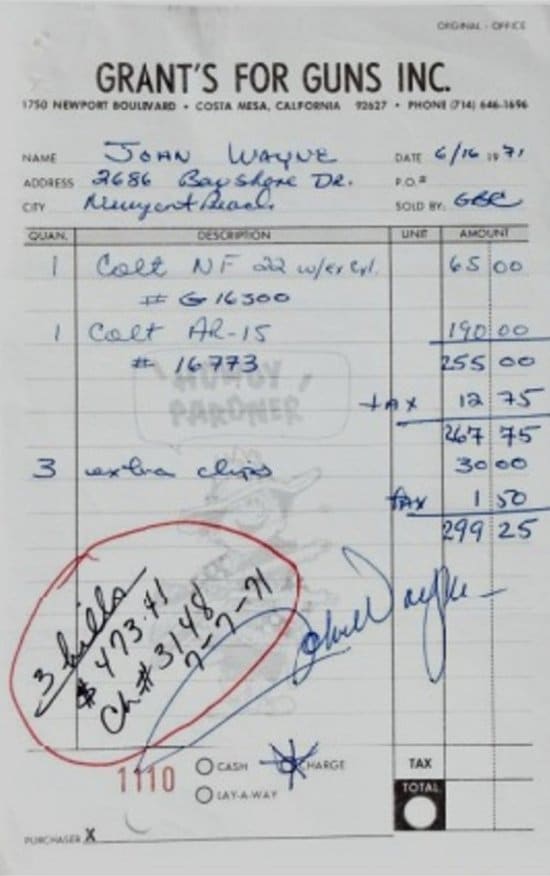 ORIGINAL - OFFICE
GRANT'S FOR GUNS INC.
1750 NEWPORT BOULEVARD • COSTA MESA, CALIFORNIA 92627 • PHONE (714) 646-1696
NAME John Wayne DATE 6/16 1971
ADDRESS 2686 Bayshore Dr. P.O.#
CITY Newport Beach. SOLD BY: GBC
QUAN. DESCRIPTION UNIT AMOUNT
1 Colt NF 22 w/ex cyl. 65 00
# G 16300
1 Colt AR-15 190 00
# 16773 255 00
HOWDY
PARDNER
tax 12 75
267 75
3 extra clips 30 00
tax 1 50
299 25
3 bills
$ 473.41
Ch # 3148
7-7-71
John Wayne
1110 CASH CHARGE TAX
LAY-A-WAY TOTAL
PURCHASER X